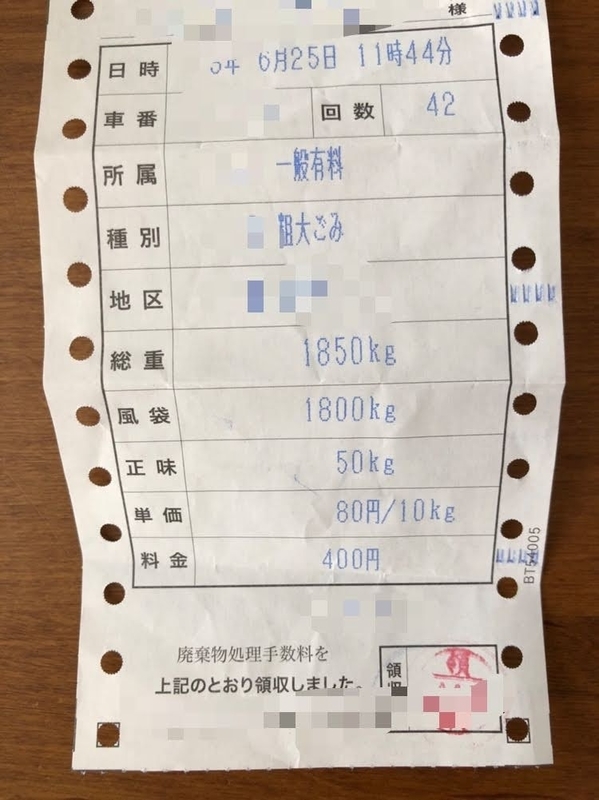 様
日時 6月25日 11時44分
車番 回数 42
所属 一般有料
種別 粗大ごみ
地区
総重 1850kg
風袋 1800kg
正味 50kg
単価 80円/10kg
料金 400円
BT54005
廃棄物処理手数料を
上記のとおり領収しました。
領収
領